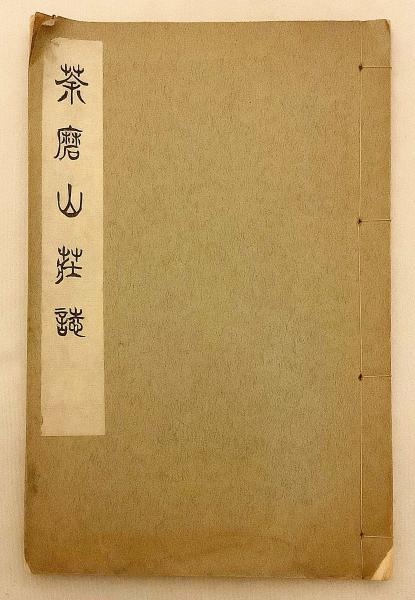 茶磨山荘誌